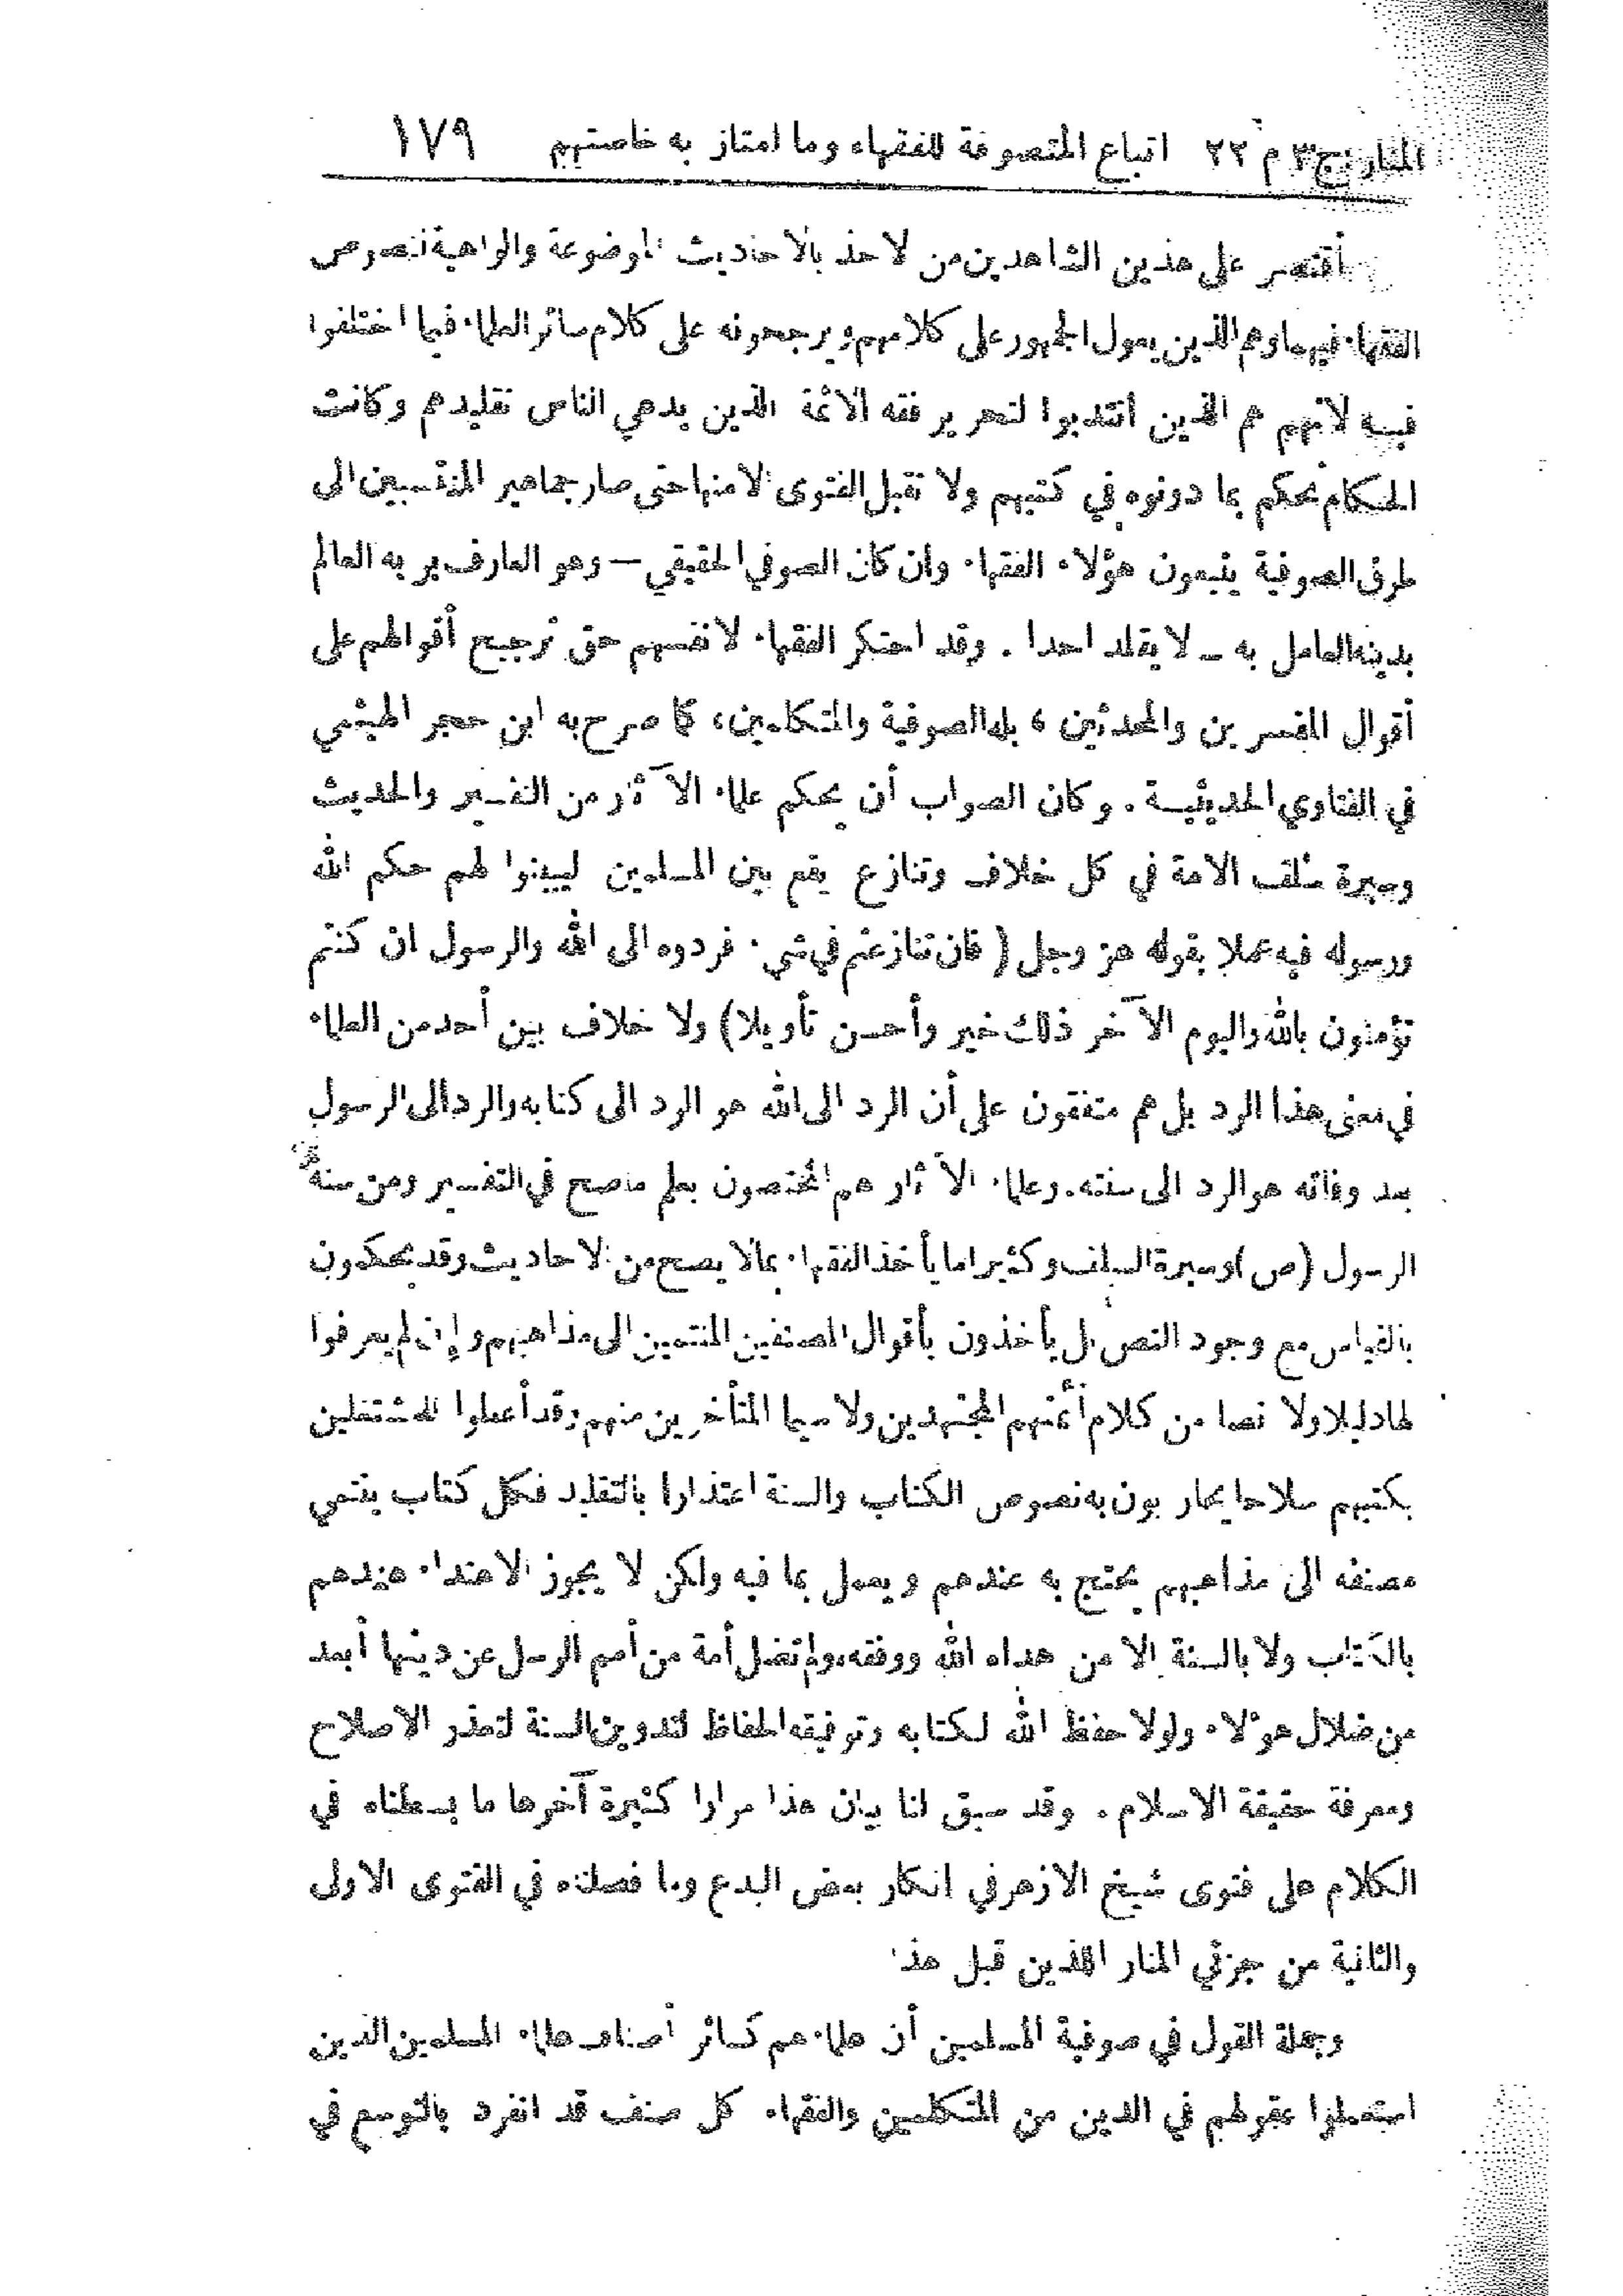 المنار: ج ٣ م ٢٢ اتباع المتصوفة للفقهاء وما امتاز به خاصتهم ١٧٩
أقتصر على هذين الشاهدين من الاخذ بالاحاديث الموضوعة والواهية نصوص
الفقهاء فيهما وهم الذين يعول الجمهور على كلامهم ويرجحونه على كلام سائر العلماء فيما اختلفوا
فيه لأنهم هم الذين انتدبوا لتحرير فقه الائمة الذين يدعي الناس تقليدهم وكانت
الحكام تحكم بما دونوه في كتبهم ولا تقبل الفتوى الا منها حتى صار جماهير المنتسبين الى
طرق الصوفية يتبعون هؤلاء الفقهاء وان كان الصوفي الحقيقي — وهو العارف بربه العالم
بدينه العامل به — لا يقلد احدا . وقد احتكر الفقهاء لانفسهم حق ترجيح أقوالهم على
أقوال المفسرين والمحدثين ، بله الصوفية والمتكلمين، كما صرح به ابن حجر الهيثمي
في الفتاوي الحديثية . وكان الصواب أن يحكم علماء الآثار من التفسير والحديث
وسيرة سلف الامة في كل خلاف وتنازع يقع بين المسلمين ليبينوا لهم حكم الله
ورسوله فيه عملا بقوله عز وجل ( فان تنازعتم في شيء فردوه الى الله والرسول ان كنتم
تؤمنون بالله واليوم الآخر ذلك خير وأحسن تأويلا) ولا خلاف بين أحد من العلماء
في معنى هذا الرد بل هم متفقون على أن الرد الى الله هو الرد الى كتابه والرد الى الرسول
بعد وفاته هو الرد الى سنته. وعلماء الآثار هم المختصون بعلم ما صح في التفسير ومن سنة
الرسول (ص) وسيرة السلف وكثيرا ما يأخذ الفقهاء بما لا يصح من الاحاديث وقد يحكمون
بالقياس مع وجود النص بل يأخذون بأقوال المصنفين المنتمين الى مذاهبهم وإن لم يعرفوا
لها دليلا ولا نصا من كلام أئمتهم المجتهدين ولا سيما المتأخرين منهم وقد أعطوا للمشتغلين
بكتبهم سلاحا يحاربون به نصوص الكتاب والسنة اعتذارا بالتقليد فكل كتاب ينتمي
مصنفه الى مذاهبهم يحتج به عندهم ويعمل بما فيه ولكن لا يجوز الاهتداء عندهم
بالكتاب ولا بالسنة الا من هداه الله ووفقه، ولم تضل أمة من أمم الرسل عن دينها أبعد
من ضلال هؤلاء ولولا حفظ الله لكتابه وتوفيقه الحفاظ لتدوين السنة لتعذر الاصلاح
ومعرفة حقيقة الاسلام . وقد سبق لنا بيان هذا مرارا كثيرة آخرها ما بسطناه في
الكلام على فتوى شيخ الازهر في انكار بعض البدع وما فصلناه في الفتوى الاولى
والثانية من جزئي المنار اللذين قبل هذا
وجملة القول في صوفية المسلمين أن علماءهم كسائر أصناف علماء المسلمين الذين
استعملوا عقولهم في الدين من المتكلمين والفقهاء كل صنف قد انفرد بالتوسع في